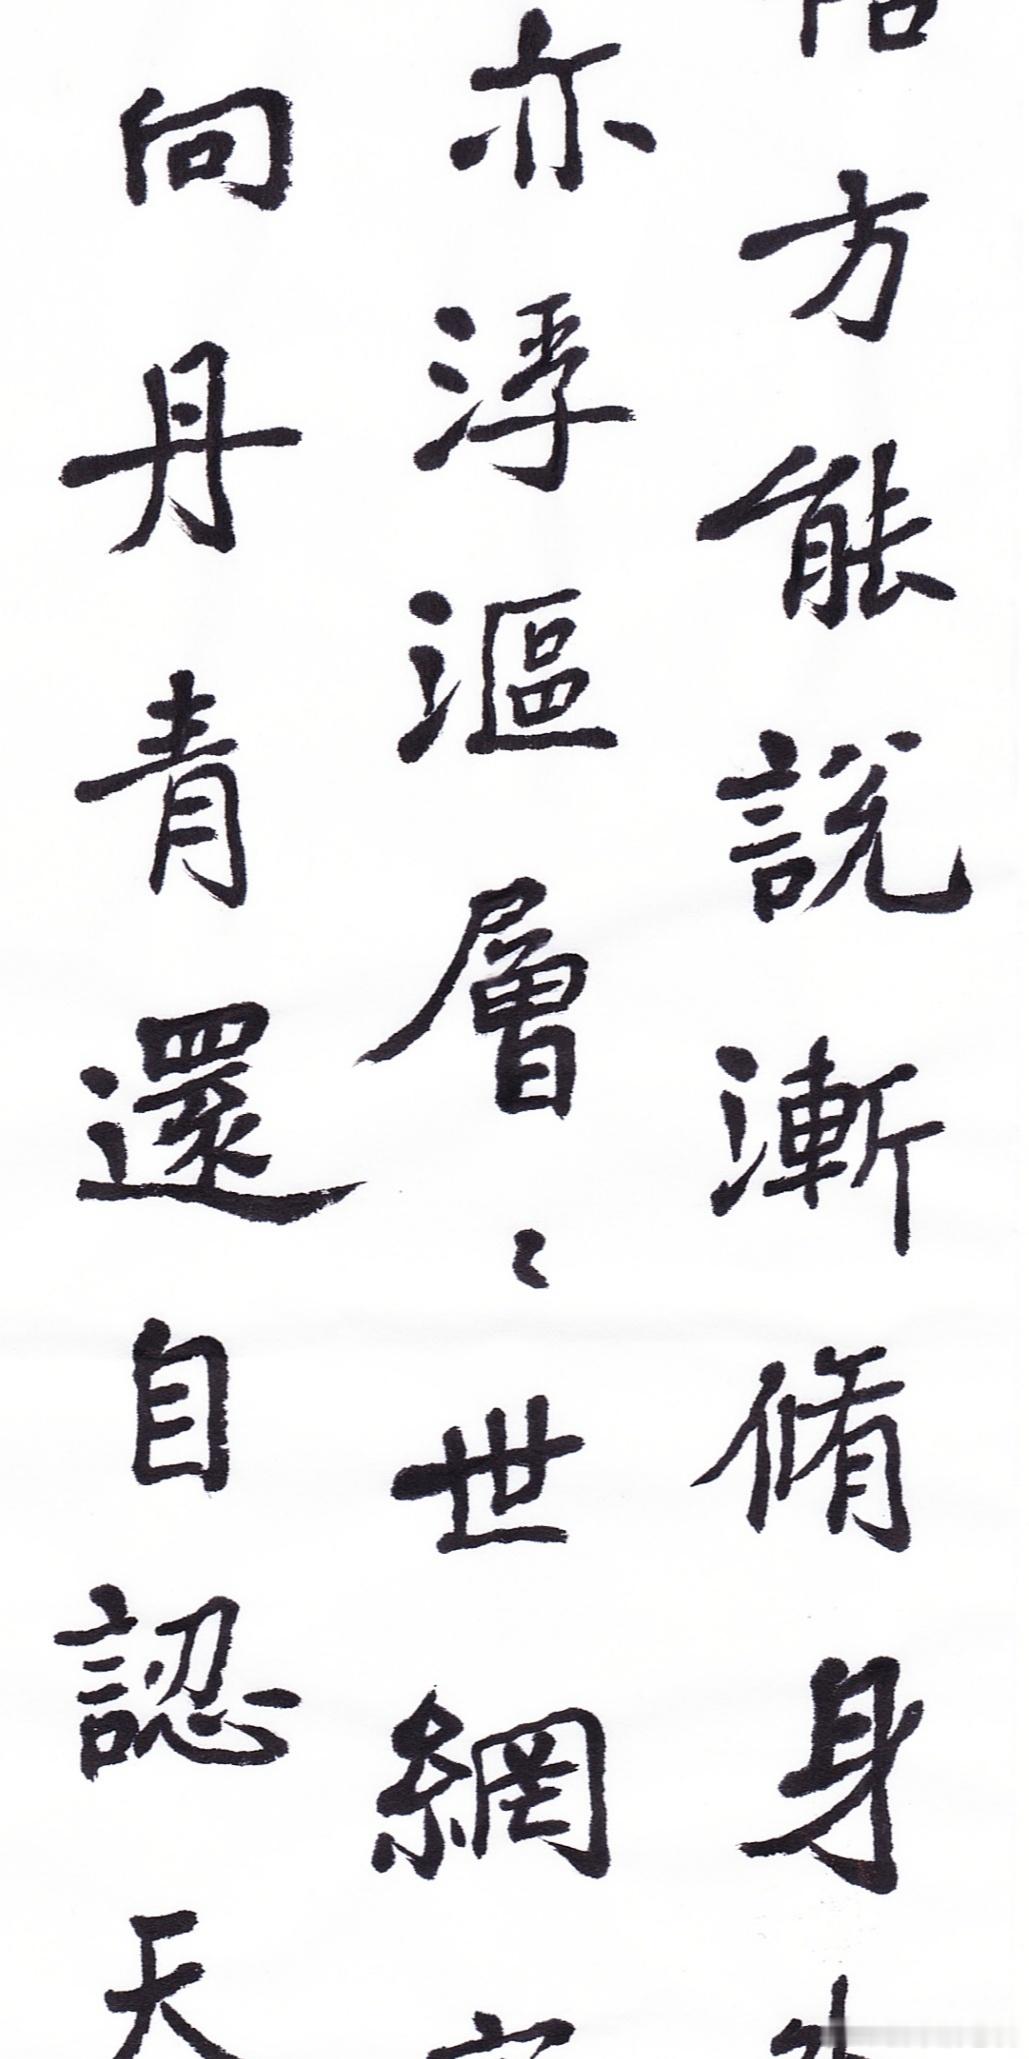 方能說漸脩身
亦浮漚層〻世網
向丹青還自認天